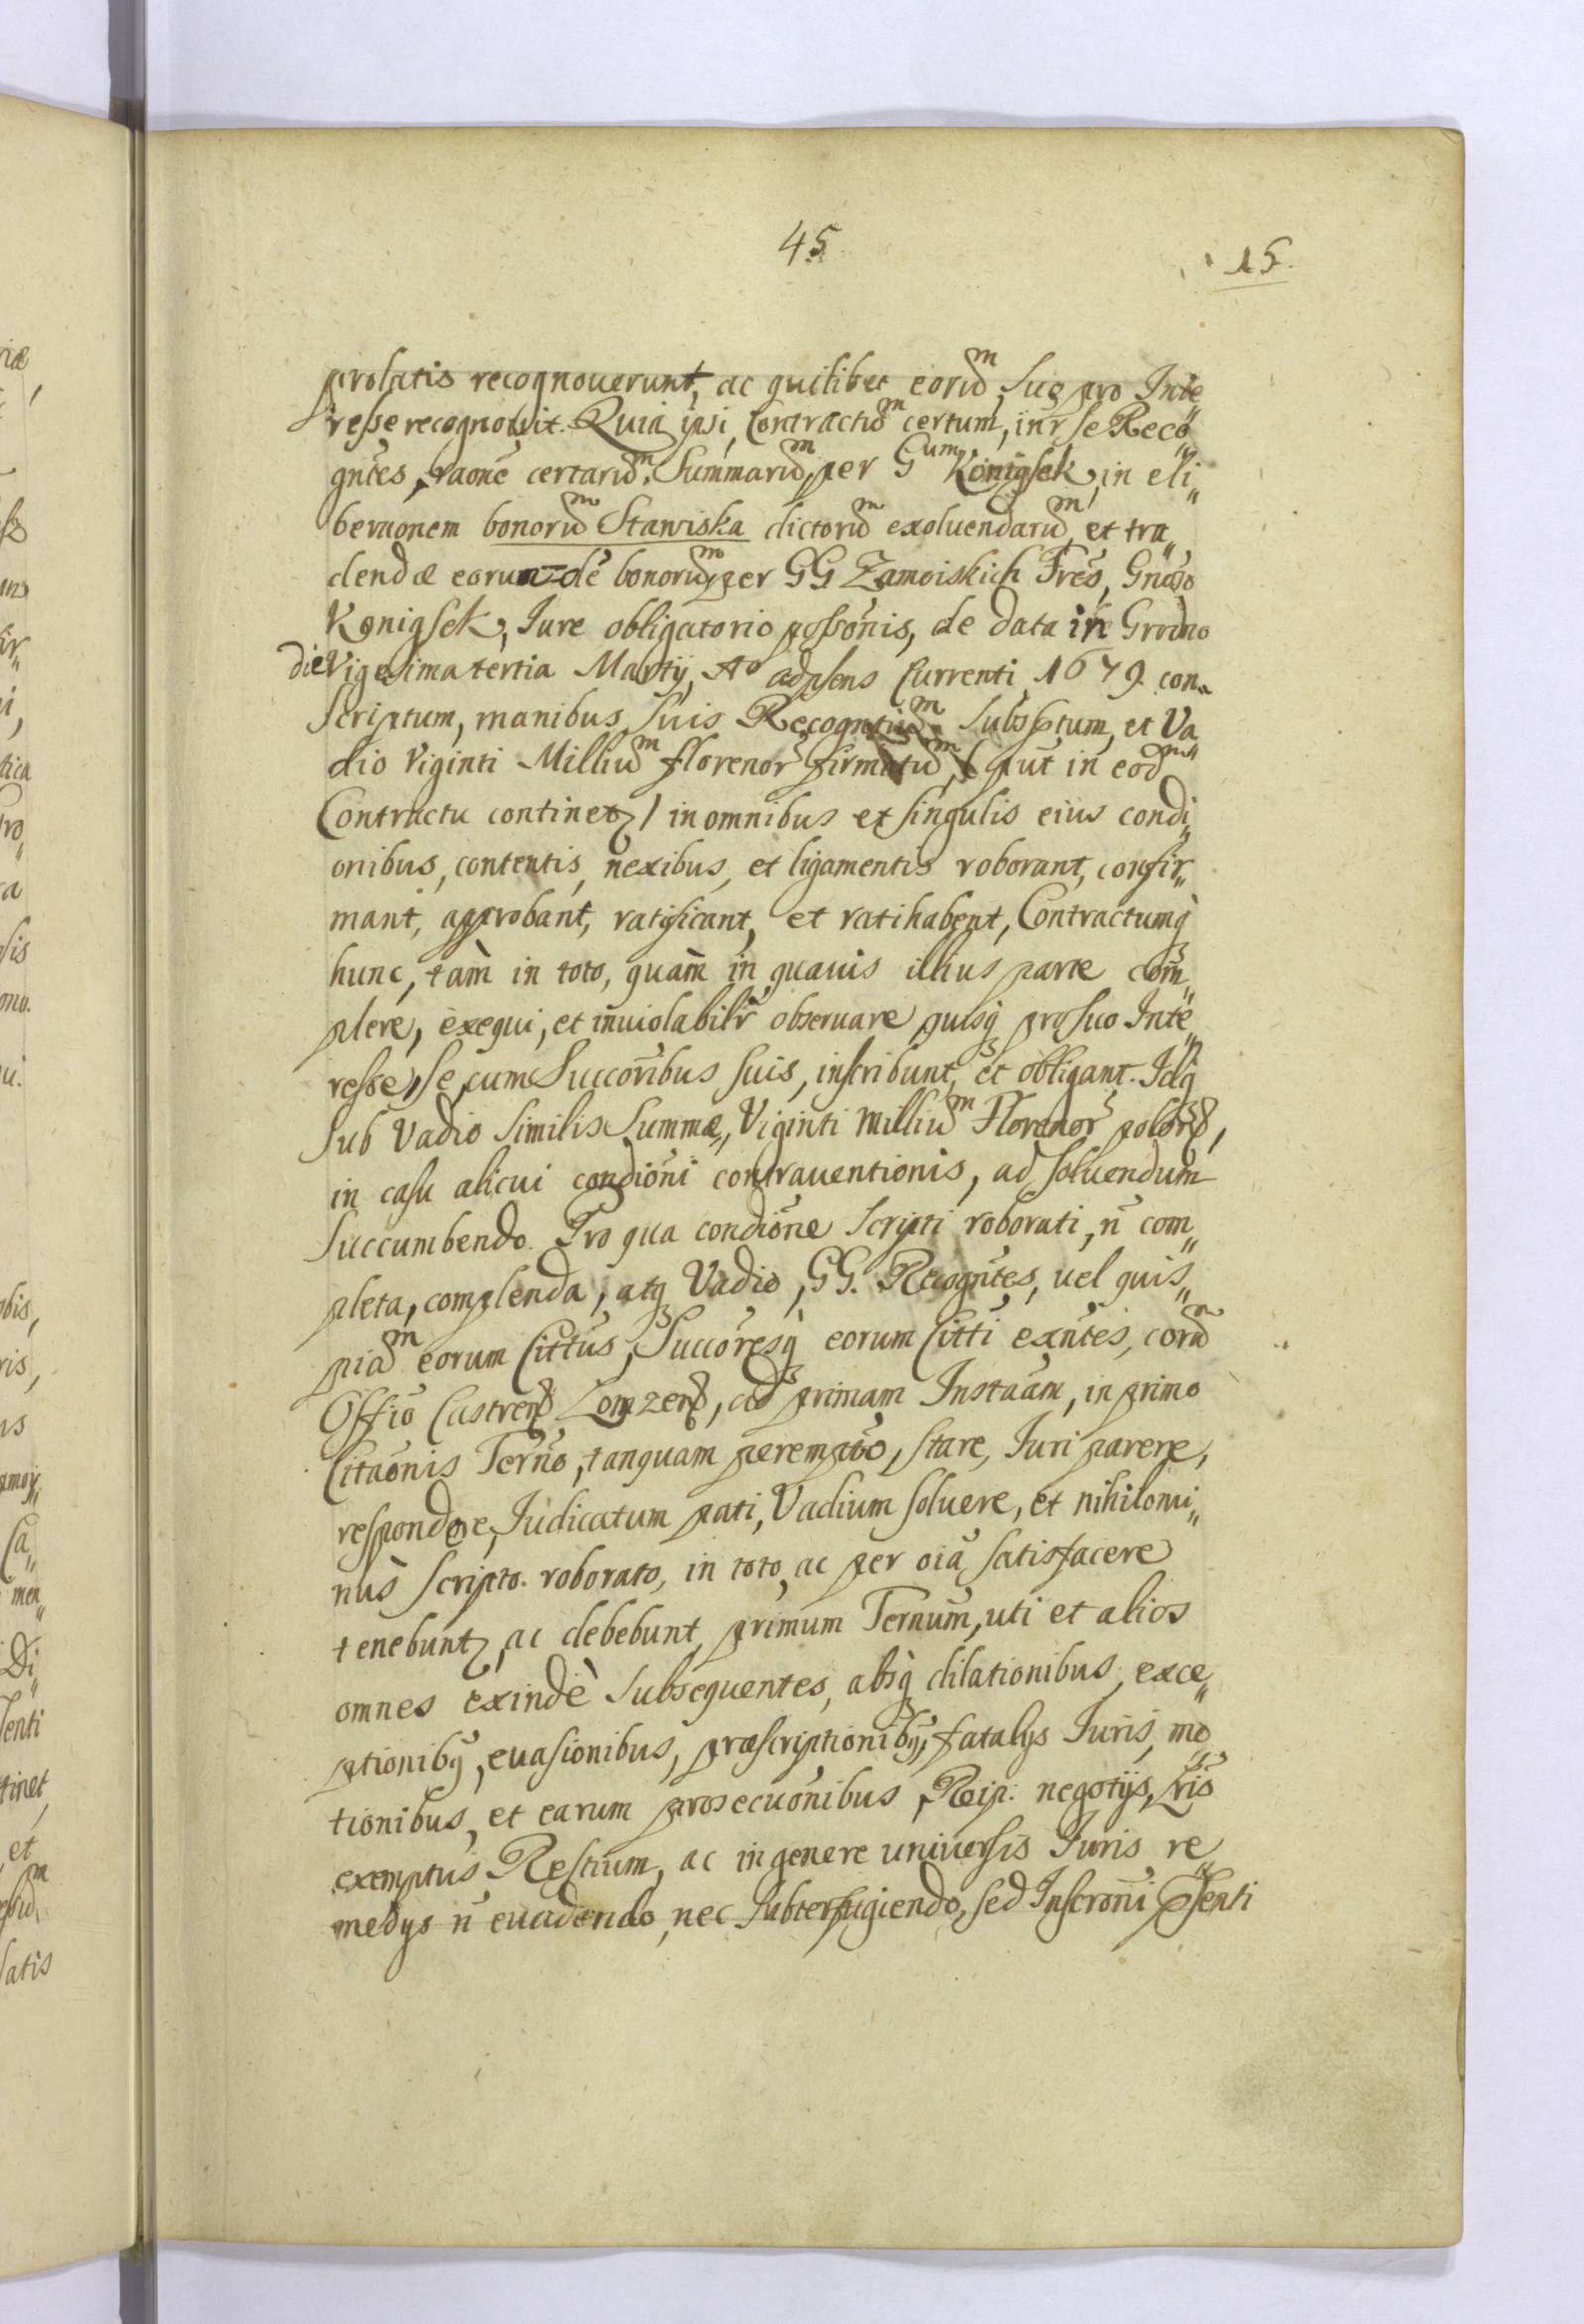 45
15.
prolatis recognouerunt, ac quilibet eorum, suo pro Inte„
resse recognouit. Quia ipsi Contractum certum, inr se Reco„
gntes, raone certarum Summarum, per Gum Konigsek, in eli„
beraonem bonorum Stawiska dictorum exoluendarum, et tra„
dendæ eorundē bonorum, per GG Zamoiskich Fres, Gnoso
Konigsek, Iure obligatorio possonis, de data in Grodno
die Vigesima tertia Martij, Ao adpsens Currenti 1679. con„
scriptum, manibus suis Recogntium subsptum, et Va„
dio Viginti Millium florenor firmatum, / put in eodm
Contractu continetr / in omnibus et singulis eius condi„
onibus, contentis, nexibus, et ligamentis roborant, confir„
mant, approbant, ratificant, et ratihabent, Contractumq
hunc, tàm in toto, quàm in quauis illius parte com„
plere, exequi, et inuiolabilr obseruare quisq pro suo Inte„
resse, se cum Succoribus suis, inscribunt, et obligant. Idq
sub Vadio similis Summæ, Viginti millium Florenor polon,
in casu alicui condioni contrauentionis, ad soluendum
succumbendo. Pro qua condione scripti roborati, n com„
pleta, complenda, atq Vadio, GG. Recogntes, uel quis„
piam eorum Cittus, Succoresq eorum Citti exntes, coram
Offio Castren Lomzen, ad primam Instaam, in primo
Citaonis Terno, tanquam peremptio, stare, Iuri parere,
respondere, Iudicatum pati, Vadium soluere, et nihilomi„
nùs scripto roborato, in toto, ac per oia satisfacere
tenebuntr, ac debebunt, primum Ternum, uti et alios
omnes exindè subsequentes, absq dilationibus, exce„
ptionibq, euasionibus, præscriptionibq, fatalijs Iuris, mo„
tionibus, et earum prosecuonibus, Reip: negotijs,
exemptus Restium, ac in genere uniuersis Iuris re„
medijs n euadendo, nec subterfugiendo, sed Inscroni psenti